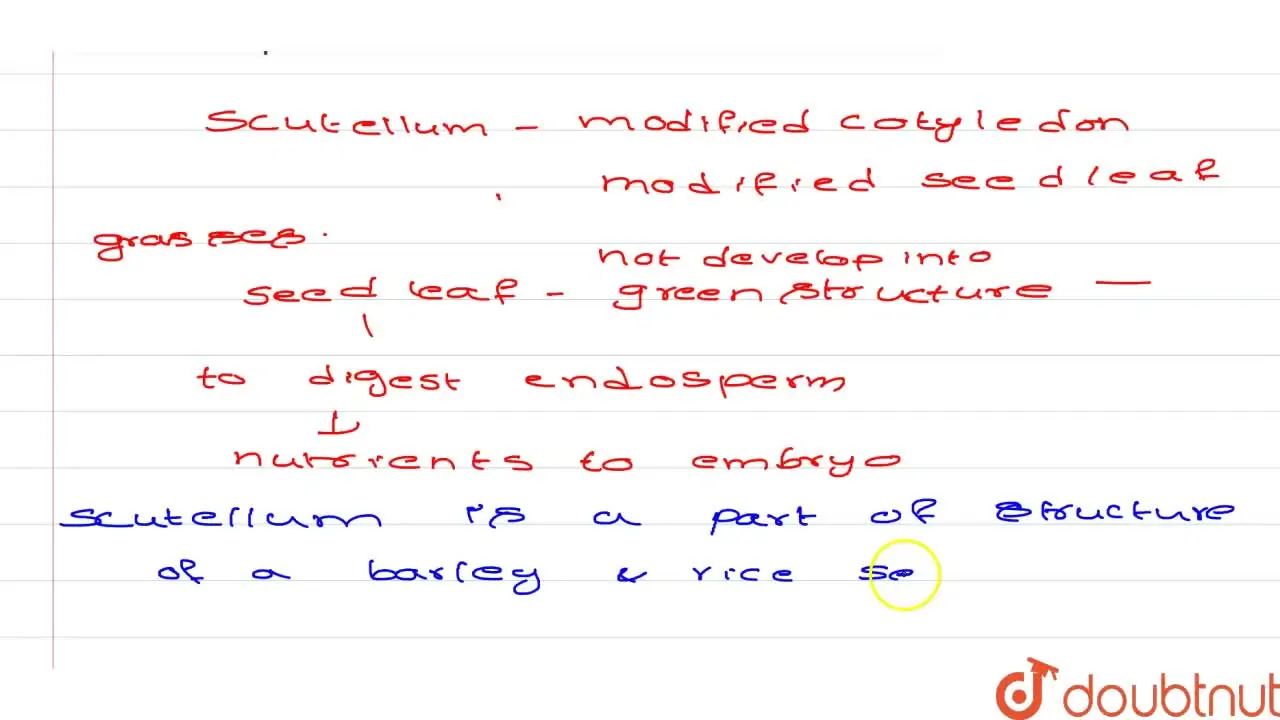 Scutellum - modified cotyledon
modified seed leaf
grasses.
not develop into
seed leaf - green structure —
to digest endosperm
nutrients to embryo
scutellum is a part of structure
of a barley & rice se
doubtnut